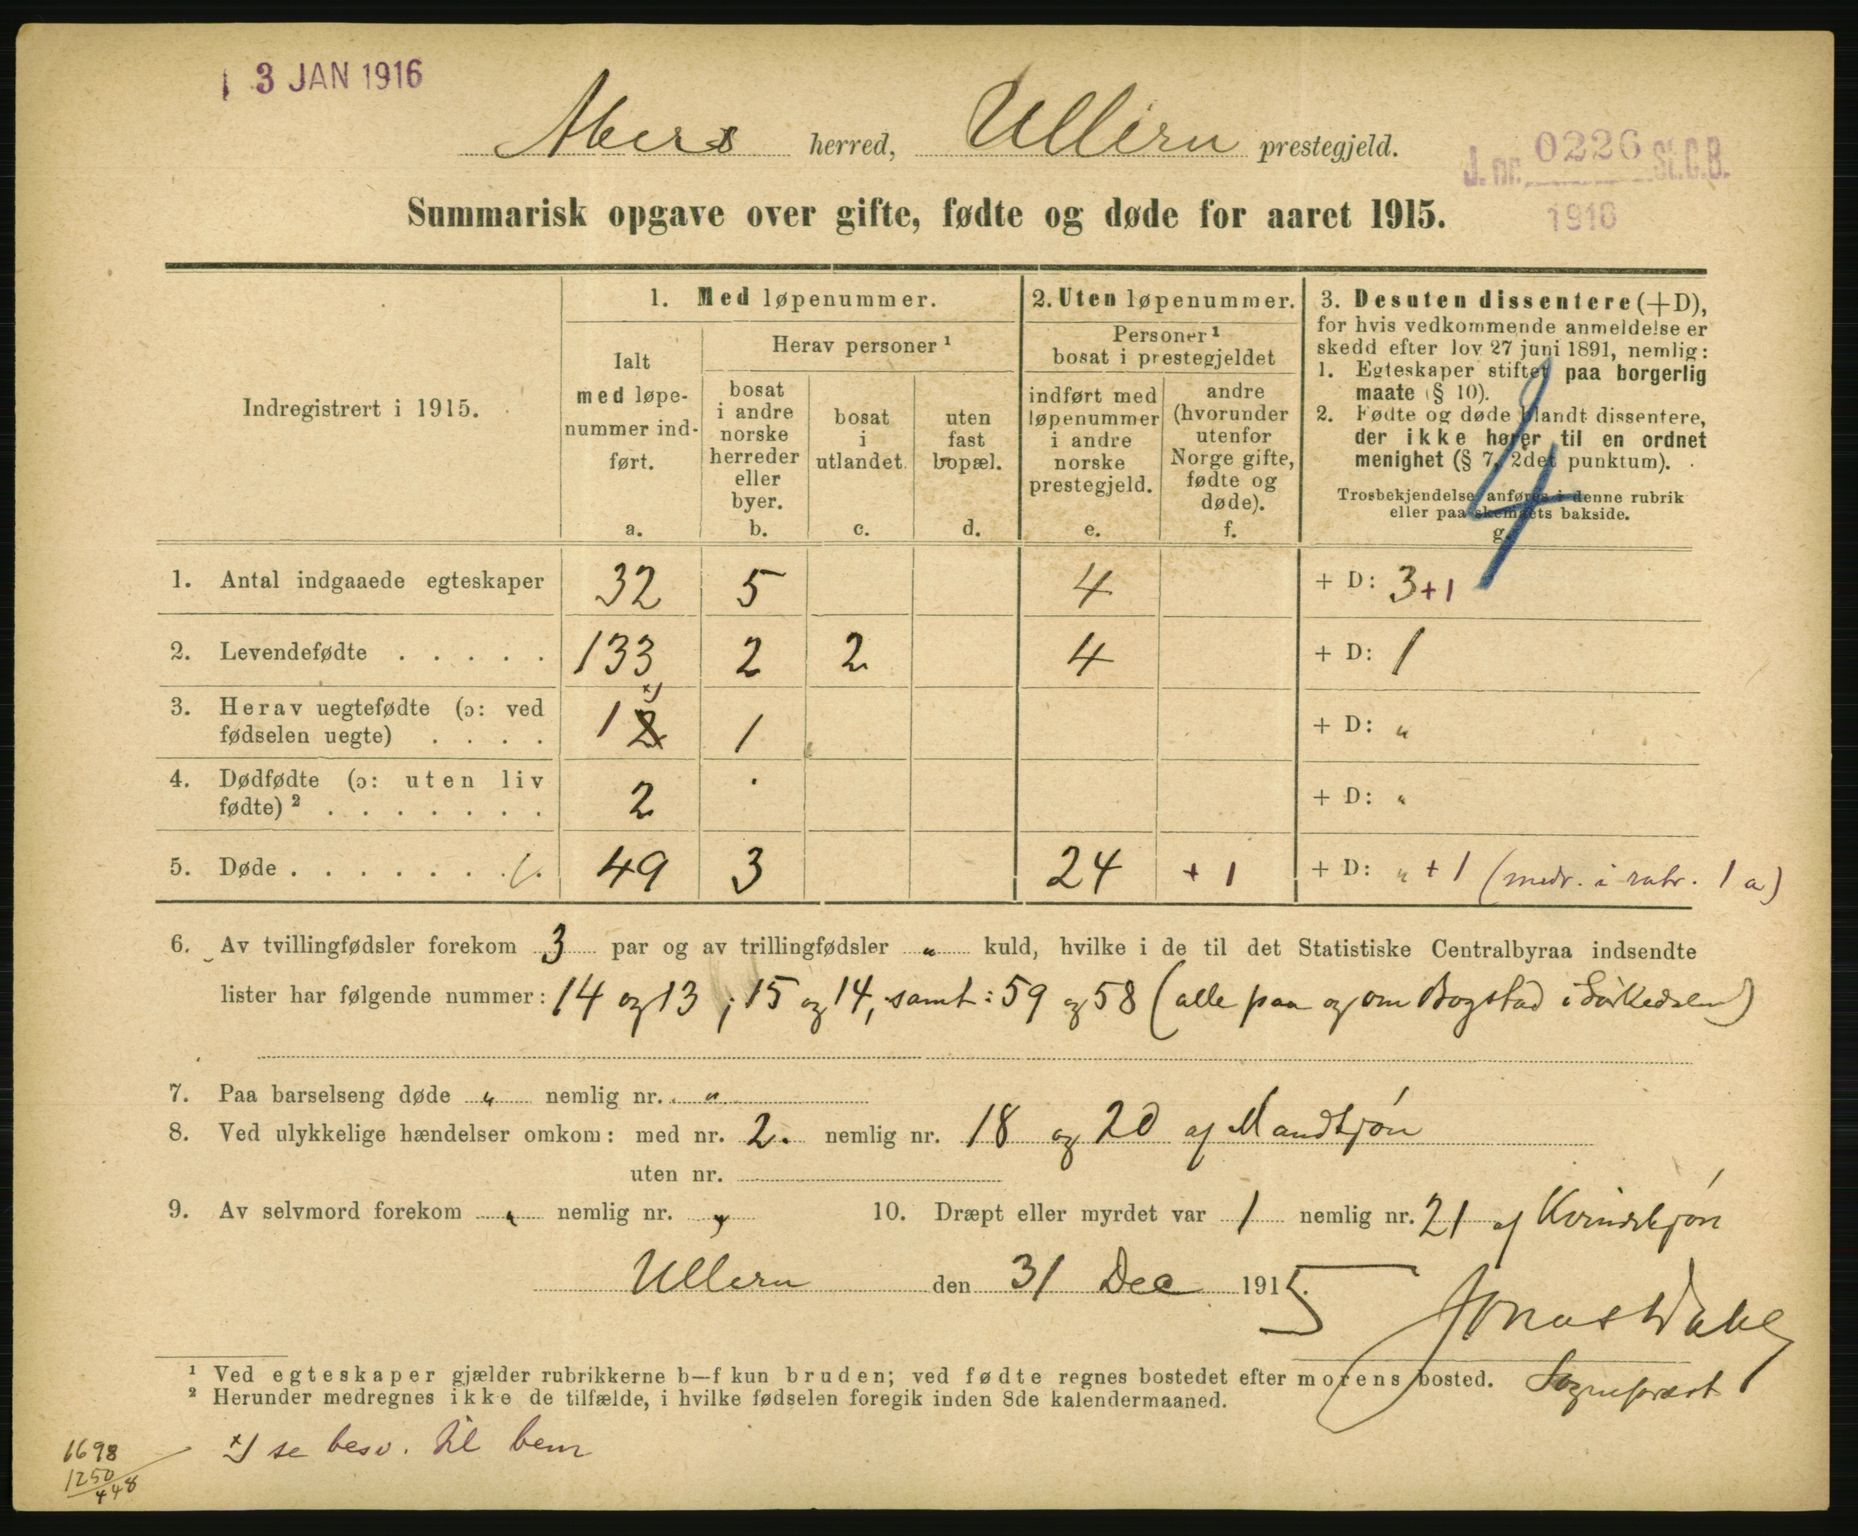 3 JAN 1916
Akers herred, Ullern prestegjeld.
J. nr. 0226 St.C.B.
1916
Summarisk opgave over gifte, fødte og døde for aaret 1915.
Indregistrert i 1915.
1. Med løpenummer.
Ialt
med løpe-
nummer ind-
ført.
a.
Herav personer ¹
bosat
i andre
norske
herreder
eller
byer.
b.
bosat
i
utlandet.
c.
uten
fast
bopæl.
d.
2. Uten løpenummer.
Personer ¹
bosat i prestegjeldet
indført med
løpenummer
i andre
norske
prestegjeld.
e.
andre
(hvorunder
utenfor
Norge gifte,
fødte og
døde).
f.
3. Desuten dissentere (+D),
for hvis vedkommende anmeldelse er
skedd efter lov 27 juni 1891, nemlig:
1. Egteskaper stiftet paa borgerlig
maate (§ 10).
2. Fødte og døde blandt dissentere,
der ikke hører til en ordnet
menighet (§ 7, 2det punktum).
Trosbekjendelse anføres i denne rubrik
eller paa skemaets bakside.
g.
4
1. Antal indgaaede egteskaper 32 5 4 + D: 3+1
2. Levendefødte . . . . . 133 2 2 4 + D: 1
3. Herav uegtefødte (ɔ: ved
fødselen uegte) . . . . 12 x) 1 + D: "
4. Dødfødte (ɔ: uten liv
fødte) ² . . . . . . . 2 + D: "
5. Døde . . . . . . . 49 3 24 + 1 + D: " + 1 (medr. i rubr. 1 a)
6. Av tvillingfødsler forekom 3 par og av trillingfødsler " kuld, hvilke i de til det Statistiske Centralbyraa indsendte
lister har følgende nummer: 14 og 13 ; 15 og 14, samt: 59 og 58 (alle paa og om Bogstad i Sørkedalen)
7. Paa barselseng døde " nemlig nr. "
8. Ved ulykkelige hændelser omkom: med nr. 2. nemlig nr. 18 og 20 af Mandkjøn
uten nr.
9. Av selvmord forekom " nemlig nr. " 10. Dræpt eller myrdet var 1 nemlig nr. 21 af Kvindekjøn
Ullern den 31 Dec 1915.
Jonas Dahl
Sogneprest
¹ Ved egteskaper gjælder rubrikkerne b—f kun bruden; ved fødte regnes bostedet efter morens bosted.
² Herunder medregnes ikke de tilfælde, i hvilke fødselen foregik inden 8de kalendermaaned.
x) se besv. til bem
1698
1250
448